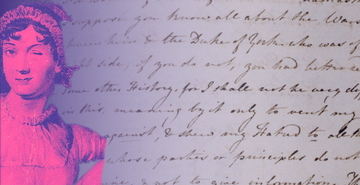 suppose you know all about the War
him & the Duke of York who was
side, if you do not, you had better
other History, for I shall not be very
this, meaning by it only to vent my
against, & shew my Hatred to all
whose parties or principles do not
& not to give information. Th